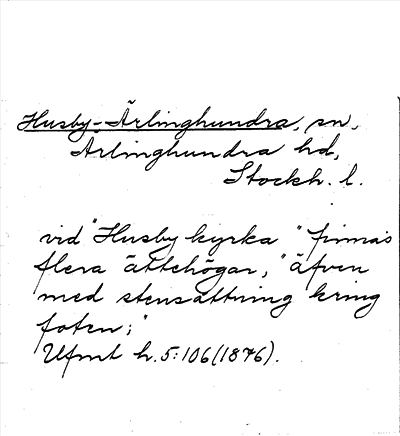 Husby-Ärlinghundra, sn,
Ärlinghundra hd,
Stockh. l.
vid "Husby kyrka" finnas
flera ättehögar, "äfven
med stensättning kring
foten;"
Ufmt h. 5:106 (1876).